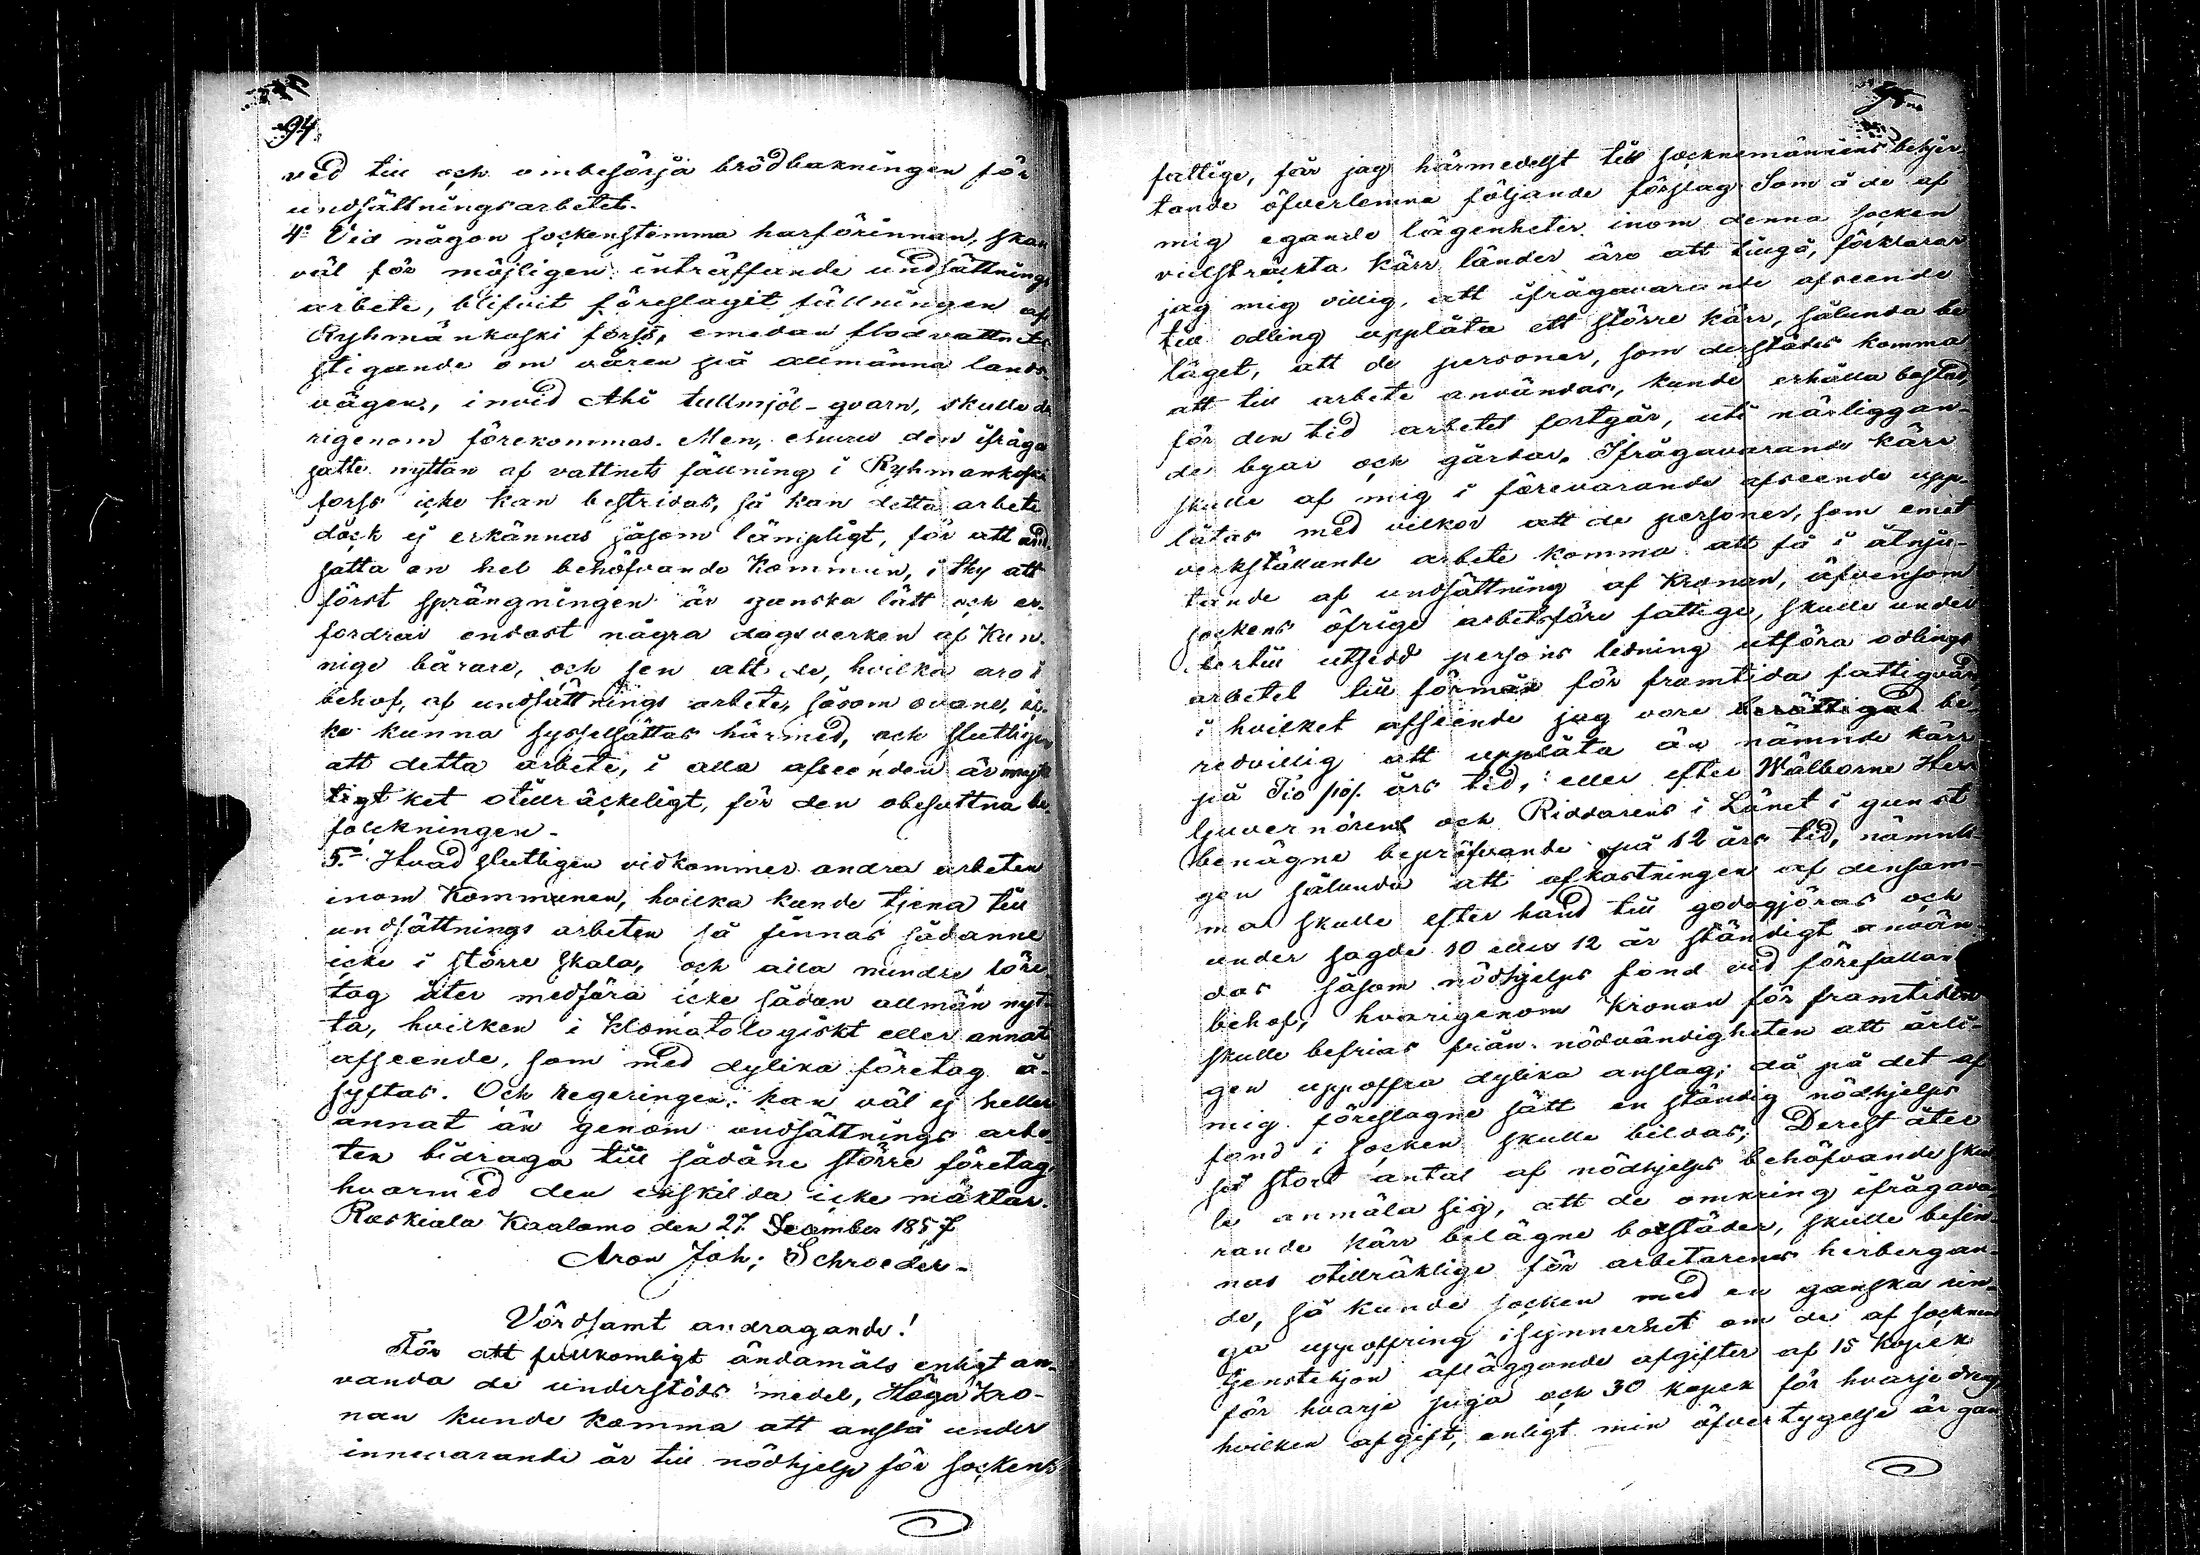 94
ved till och ombesörja brödbakningen för
undsättningsarbetet.
4:o Vid någon sockenstemma harförinnan, skan
väl för möjligen inträffande undsättnings
arbete, blifvit föreslagit fällningen af
Ryhmänkoski forss, emedan flodvattnets
stigande om våren på allmänna lands-
vägen, invid Ahi tullmjöl-qvarn, skulle de
rigenom förekommas. Men, ehuru den ifråga
satte nyttan af vattnets fällning i Ryhmankoski
forss icke kan bestridas, så kan detta arbete
dock ej erkännas såsom lämpligt, för att und
sätta en hel behöfvande Kommun, i thy att
först sprängningen är ganska lätt och er-
fordrar endast några dagsverken af Kun-
nige bärare, och sen att de, hvilka äro i
behof, af undsättnings arbete, såsom ovane, ic-
ke kunna sysselsättas härmed, och slutligen
att detta arbete, i alla afseenden är
otillräckeligt, för den obesuttna be-
folkningen.
5:o Hvad slutligen vidkommer andra arbeten
inom Kommunen, hvilka kunde tjena till
undsättnings arbeten så finnas sådanne
icke i större skala, och alla mindre före-
tag åter medföra icke sådan allmän nyt-
ta, hvilken i Klomatologiskt eller annat
afseende, som med dylika företag å-
syftas. Och Regeringen kan väl ej heller
annat än genom undsättnings arbe-
ten bidraga till sådane större företag,
hvarmed den enskilda icke mäktar.
Ruskiala Kaalamo den 27 December 1857
Aron Joh: Schroeder.
Vördsamt andragande!
För att fullkomligt ändamåls enligt an-
vanda de understöds medel, Höga Kro-
nan kunde komma att anslå under
innevarande år till nödhjelp för sockens
fattige, får jag härmedelst till socknemännens behjer-
tande öfverlemna följande förslag. Som å de af
mig egande lägenheter inom denna socken
vidsträckta kärr länder äro att tillgå, förklarar
jag mig villig, att ifrågavarande afseende
till odling upplåta ett större kärr, sålunda be
läget, att de personer, som derstädes komma
att till arbete användas, kunde erhålla bostad,
för den tid arbetet fortgår, uti närliggan-
de byar och gårdar. Ifrågavarande kärr
skulle af mig i förevarande afseende upp-
låtas med vilkor att de personer, som emot
verkställande arbete komma att få i åtnju-
tande af undsättning af Kronan, äfvensom
sockens öfrige arbetsföre fattige, skulle under
dertill utsedd persons ledning utföra odlings
arbetet till förmån för framtida fattigvård
i hvilket afseende jag vore berättigad be-
redvillig att upplåta än nämnde kärr
på Tio /10/ års tid, eller efter Wälborne Herr
Guvernörens och Riddarens i Länet i gunst
benägne bepröfvande på 12 års tid, nämnli-
gen sålunda att afkastningen af densam-
ma skulle efter hand till godogjöras och
under sagde 10 eller 12 år ständigt använ-
das såsom nödhjelps fond vid förefallan
behof, hvarigenom Kronan för framtiden
skulle befrias från nödvändigheten att årli-
gen uppoffra dylika anslag; då på det af
mig föreslagne sätt en ständig nödhjelps
fond i socken skulle bildas; Derest åter
så stort antal af nödhjelps behöfvande skul
le anmäla sig, att de omkring ifrågava-
rande kärr belägne boställder, skulle befin-
nas otillräklige för arbetarenes herbergan-
de, så kunde socken med en ganska rin-
ga uppoffring isynnerhet om de af socknens
tjenstehjon afläggande afgifter af 15 kopek
för hvarje piga och 30 kopek för hvarje dreng,
hvilken afgift, enligt min öfvertygelse är gan